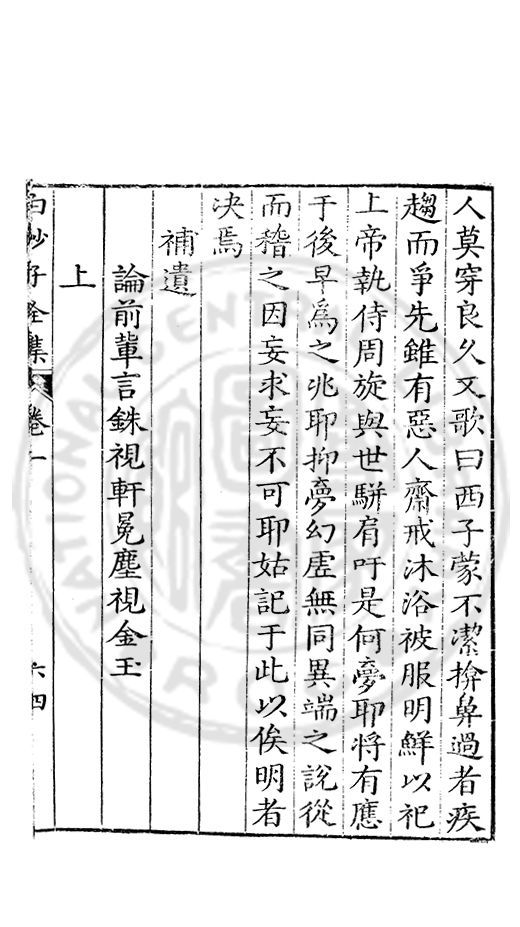 人莫穿良久又歌曰西子蒙不潔揜鼻過者疾
趨而爭先雖有惡人齋戒沐浴被服明鮮以祀
上帝執侍周旋與世駢肩吁是何夢耶將有應
于後早為之兆耶抑夢幻虛無同異端之說從
而稽之因妄求妄不可耶姑記于此以俟明者
决焉
補遺
論前輩言銖視軒冕塵視金玉
上
白沙子全集 卷一 六四
NATIONAL CENTRAL LIBRARY